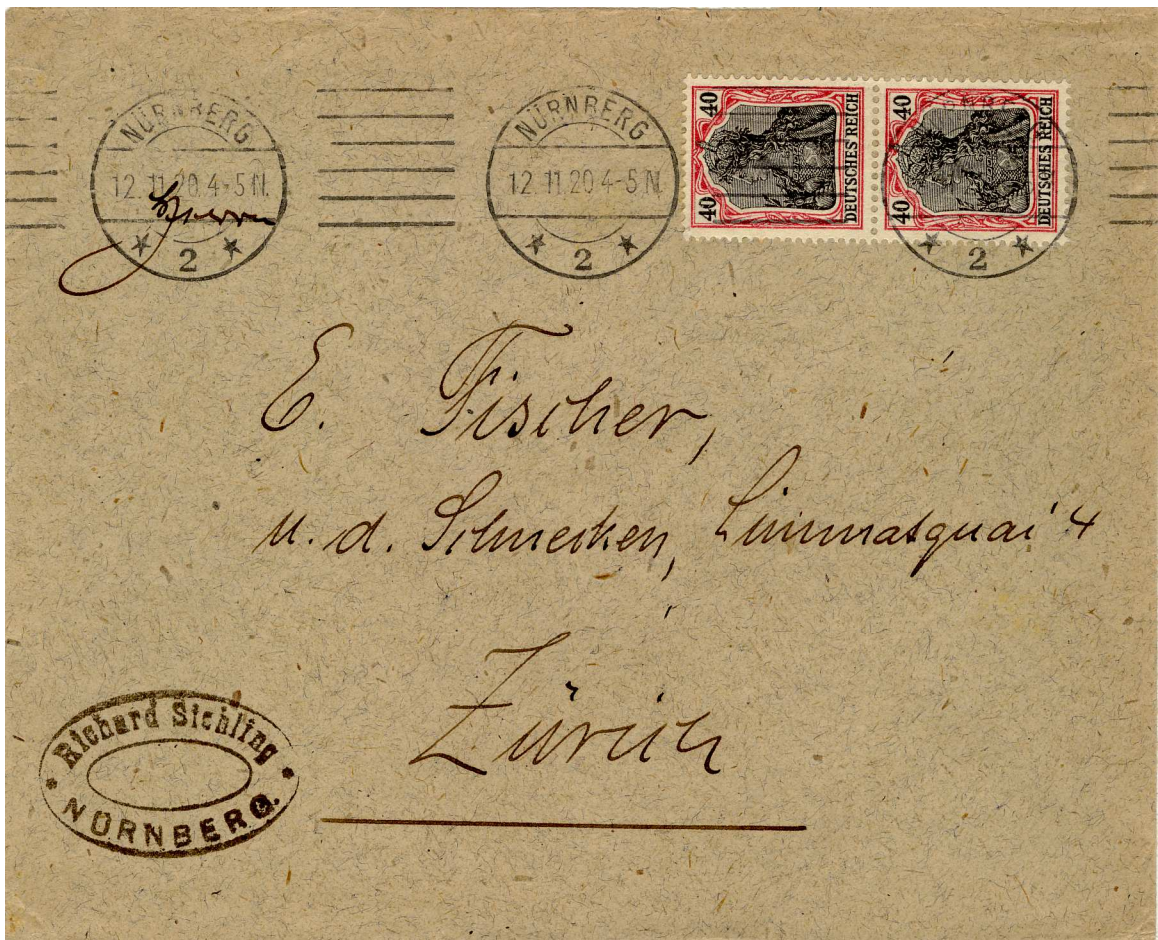 NÜRNBERG
12.11.20 4-5 N.
2
NÜRNBERG
12.11.20 4-5 N.
2
40 40
DEUTSCHES REICH
40 40
DEUTSCHES REICH
2
Herrn
E. Fischer,
z. d. Schnecken, Limmatquai 4
Zürich
Richard Sichling
NÜRNBERG.